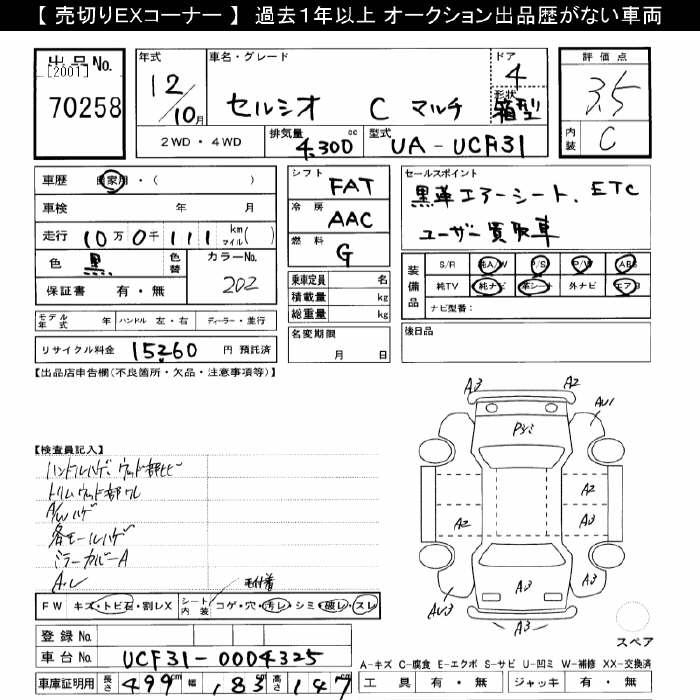 【 売切りEXコーナー 】 過去1年以上 オークション出品歴がない車両
出品No.
[2001]
70258
年式
12/10月
車名・グレード
セルシオ C マルチ
ドア
4
形状
箱型
評価点
3.5
内装
C
2WD ・ 4WD
排気量
4,300cc
型式
UA-UCF31
車歴 自家用 ・ ( )
車検 年 月
走行 10万0千111 km マイル ( )
色 黒
色替
カラーNo.
202
保証書 有 ・ 無
シフト FAT
冷房 AAC
燃料 G
乗車定員 名
積載量 kg
総重量 kg
名変期限
月 日
セールスポイント
黒革エアーシート、ETC
ユーザー買取車
装備品
S/R 純A/W P/S P/W ABS
純TV 純ナビ 革シート 外ナビ エアB
ナビ型番:
後日品
モデル年式 年 ハンドル 左・右 ディーラー・並行
リサイクル料金 15260 円 預託済
【出品店申告欄(不良箇所・欠品・注意事項等)】
【検査員記入】
ハンドルハゲ、ウッド部ヒビ
トリムウッド部ワレ
A/Wハゲ
各モールハゲ
ミラーカバーA
毛付着
FW キズ・トビ石・割レX
シート内装 コゲ・穴・汚レ・シミ・破レ・スレ
A3 A2
AU1
A2
A2 A3
A3 A3
AU3
A3
スペア
登録No.
車台No. UCF31-0004325
車庫証明用 長さ 499cm 幅 183cm 高さ 147cm
A-キズ C-腐食 E-エクボ S-サビ U-凹ミ W-補修 XX-交換済
工具 有 ・ 無 ジャッキ 有 ・ 無